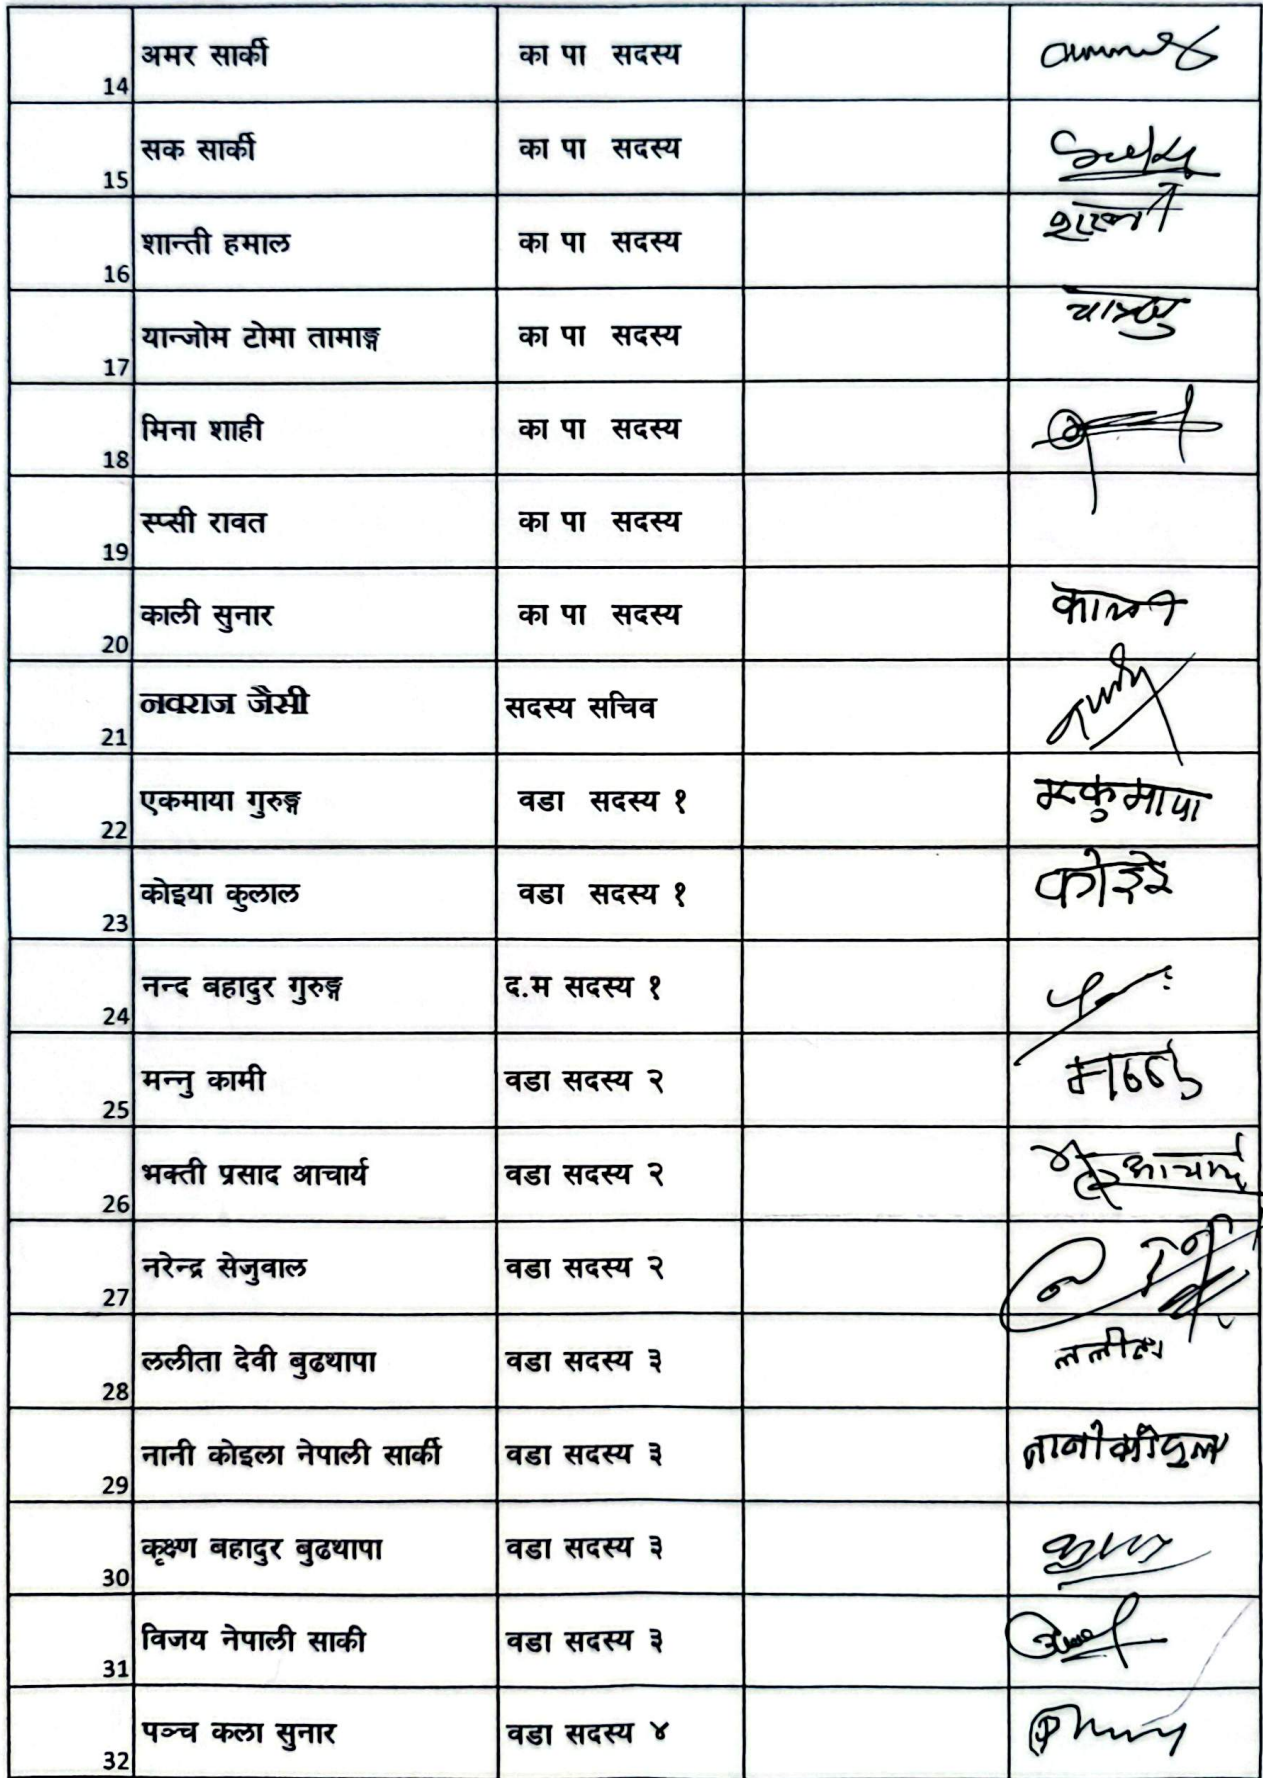 14 अमर सार्की का पा सदस्य
15 सक सार्की का पा सदस्य
16 शान्ती हमाल का पा सदस्य
17 यान्जोम टोमा तामाङ्ग का पा सदस्य
18 मिना शाही का पा सदस्य
19 रुप्सी रावत का पा सदस्य
20 काली सुनार का पा सदस्य
21 नवराज जैसी सदस्य सचिव
22 एकमाया गुरुङ्ग वडा सदस्य १
23 कोइया कुलाल वडा सदस्य १
24 नन्द बहादुर गुरुङ्ग द.म सदस्य १
25 मन्नु कामी वडा सदस्य २
26 भक्ती प्रसाद आचार्य वडा सदस्य २ आचार्य
27 नरेन्द्र सेजुवाल वडा सदस्य २
28 ललीता देवी बुढथापा वडा सदस्य ३ ललीता
29 नानी कोइला नेपाली सार्की वडा सदस्य ३
30 कृष्ण बहादुर बुढथापा वडा सदस्य ३
31 विजय नेपाली साकी वडा सदस्य ३
32 पञ्च कला सुनार वडा सदस्य ४